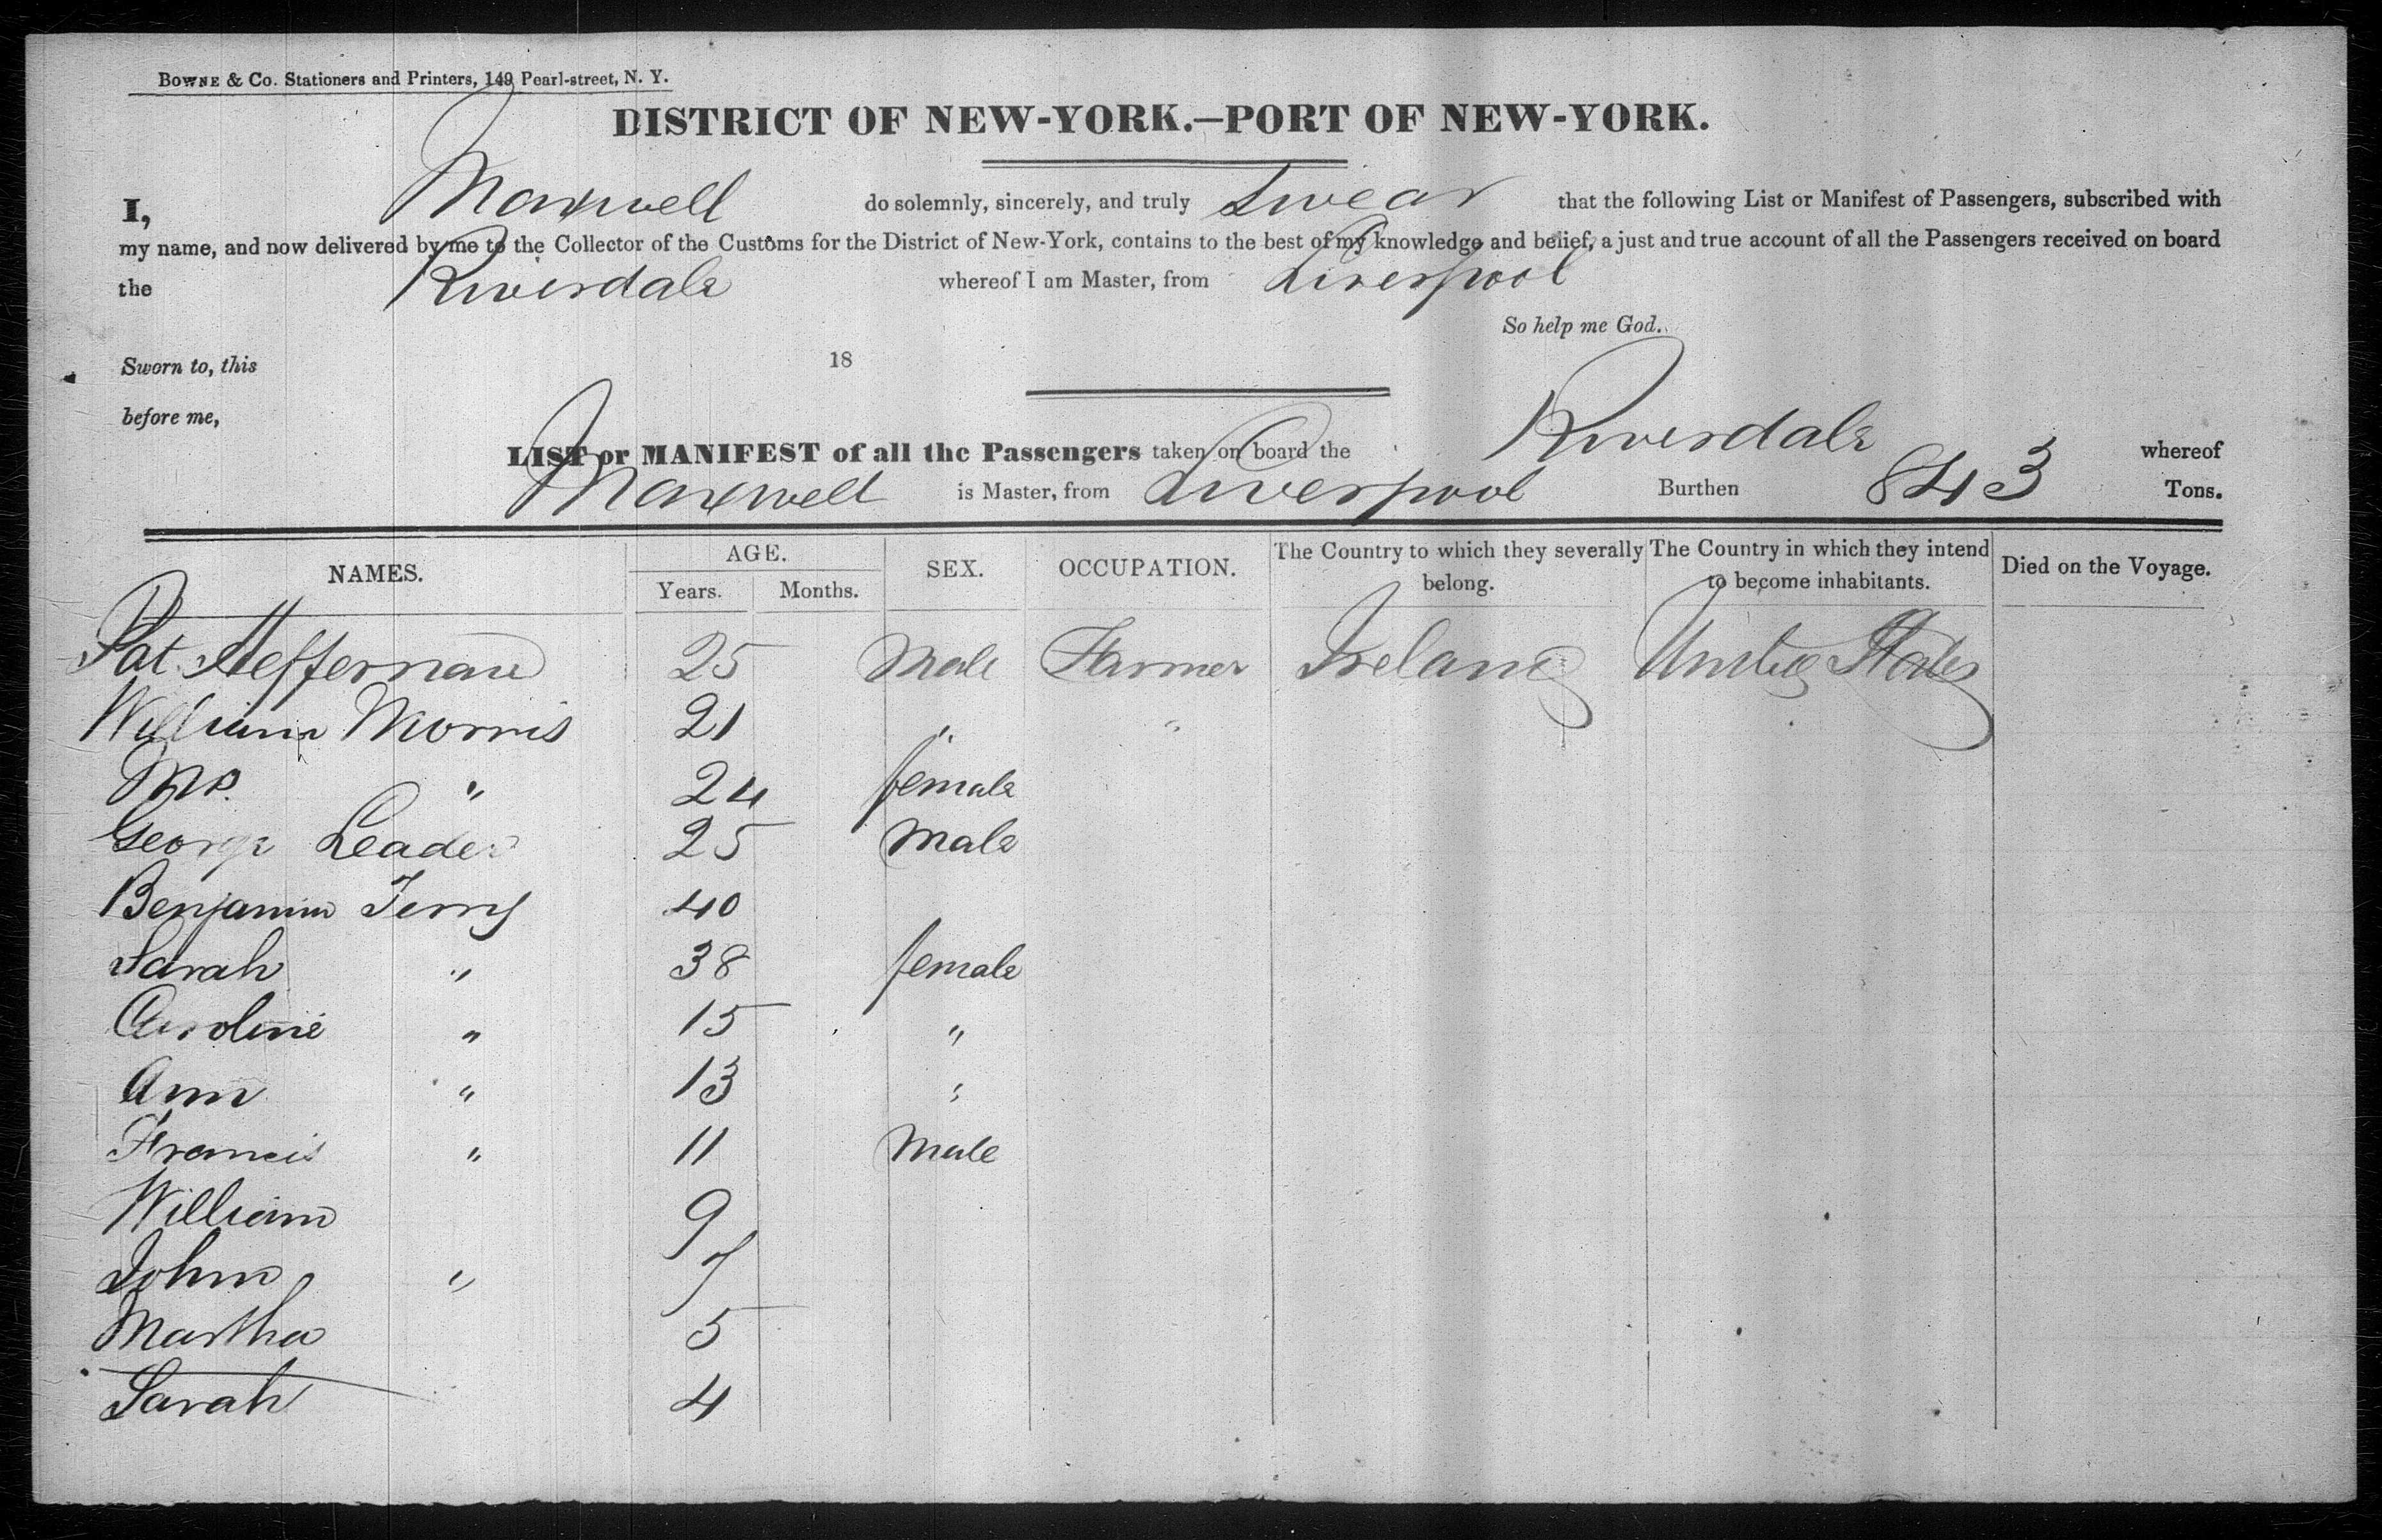 BOWNE & CO. Stationers and Printers, 149 Pearl-street, N. Y.
DISTRICT OF NEW-YORK.—PORT OF NEW-YORK.
I, Maxwell do solemnly, sincerely, and truly Swear that the following List or Manifest of Passengers, subscribed with
my name, and now delivered by me to the Collector of the Customs for the District of New-York, contains to the best of my knowledge and belief, a just and true account of all the Passengers received on board
the Riverdale whereof I am Master, from Liverpool
So help me God.
Sworn to, this 18
before me,
LIST or MANIFEST of all the Passengers taken on board the Riverdale whereof
Maxwell is Master, from Liverpool Burthen 843 Tons.
NAMES. AGE. Years. Months. SEX. OCCUPATION. The Country to which they severally belong. The Country in which they intend to become inhabitants. Died on the Voyage.
Pat Heffernan 25 Male Farmer Ireland United States
William Morris 21 " "
Mrs. " 24 female
George Leader 25 Male
Benjamin Terry 40
Sarah " 38 female
Caroline " 15 "
Ann " 13 "
Francis " 11 Male
William 9
John " 7
Martha 5
Sarah 4